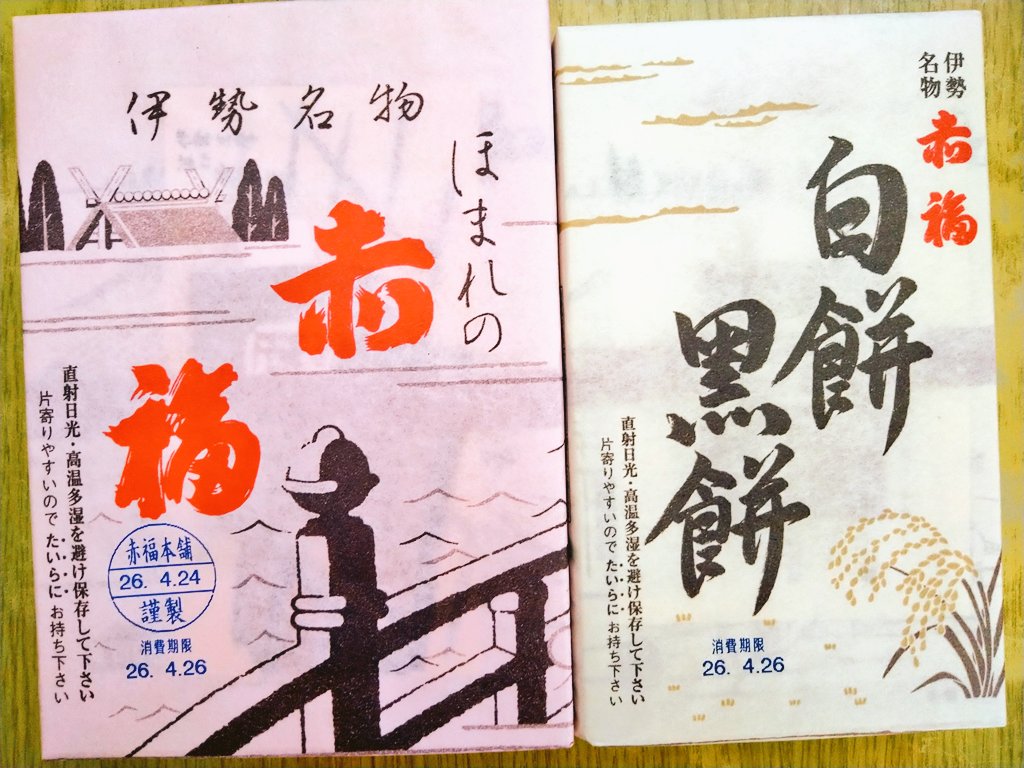 伊勢名物
ほまれの
赤
福
直射日光・高温多湿を避け保存して下さい
片寄りやすいので たいらに お持ち下さい
赤福本舗
26. 4.24
謹製
消費期限
26. 4.26
伊勢
名物
赤福
白餅
黒餅
直射日光・高温多湿を避け保存して下さい
片寄りやすいので たいらに お持ち下さい
消費期限
26. 4.26